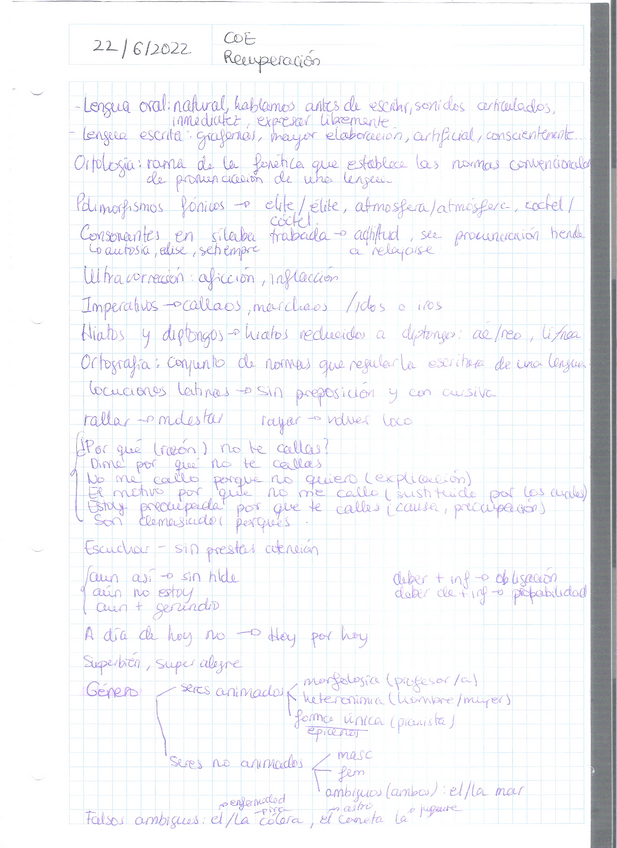 22/6/2022
COE
Recuperación
- Lengua oral: natural, hablamos antes de escribir, sonidos articulados,
inmediatez, expresar libremente.
- Lengua escrita: grafemas, mayor elaboración, artificial, conscientemente.
Ortología: rama de la fonética que establece las normas convencionales
de pronunciación de una lengua
Polimorfismos fónicos → elite/élite, atmosfera/atmósfera, coctel/
cóctel.
Consonantes en sílaba trabada → actitud, su pronunciación tiende
a relajarse
Ultracorrección: aficción, inflacción
Imperativos → callaos, marchaos /idos o iros
Hiatos y diptongos → hiatos reducidos a diptongo: aé/reo, lí/nea
Ortografía: conjunto de normas que regular la escritura de una lengua
locuciones latinas → sin preposición y con cursiva
rallar → molestar rayar → volver loco
¿Por qué (razón) no te callas?
Dime por qué no te callas
No me callo porque no quiero (explicación)
El motivo por que no me callo (sustituide por los cuales)
Estoy preocupada por que te calles (causa, preocupación)
Son demasiados porqués.
Escuchar - sin prestar atención
aun así → sin tilde
aún no estoy
aun + gerundio
deber + inf → obligación
deber de + inf → probabilidad
A día de hoy no → Hoy por hoy
Superbién, super alegre
Género
seres animados
morfología (profesor/a)
heteronimia (hombre/mujer)
forma única (pianista)
epicenos
Seres no animados
masc
fem
ambiguos (ambos): el/la mar
enfermedad
astro
juguete
Falsos ambiguos: el/la cólera, el cometa la"